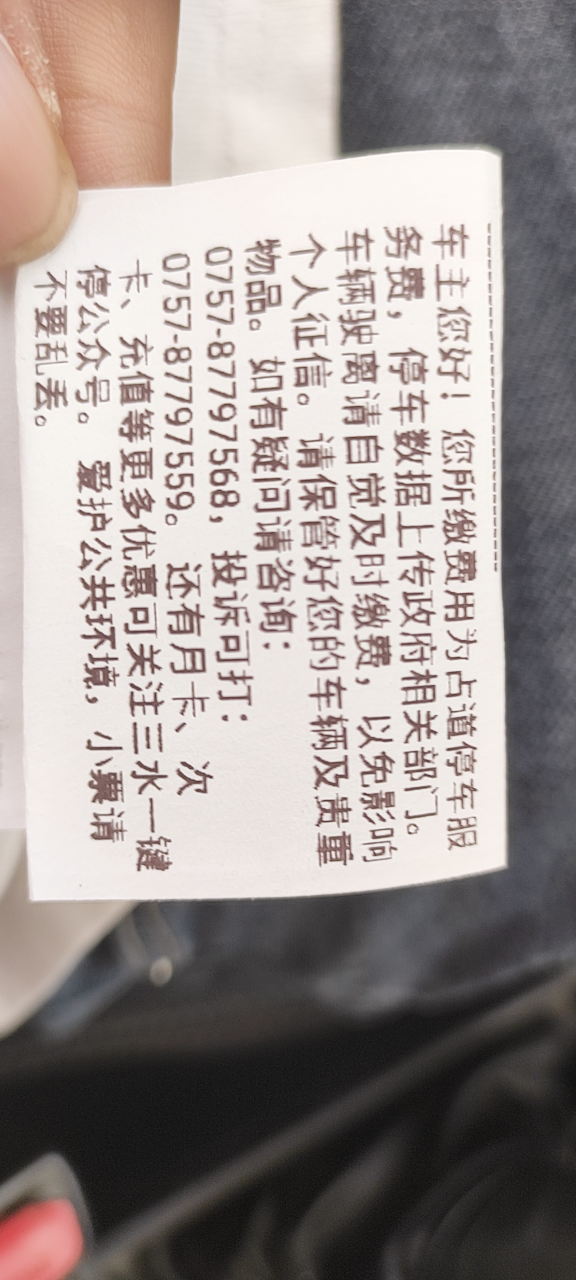 车主您好！您所缴费用为占道停车服
务费，停车数据上传政府相关部门。
车辆驶离请自觉及时缴费，以免影响
个人征信。请保管好您的车辆及贵重
物品。如有疑问请咨询：
0757-87797568，投诉可打：
0757-87797559。还有月卡、次
卡、充值等更多优惠可关注三水一键
停公众号。爱护公共环境，小票请
不要乱丢。